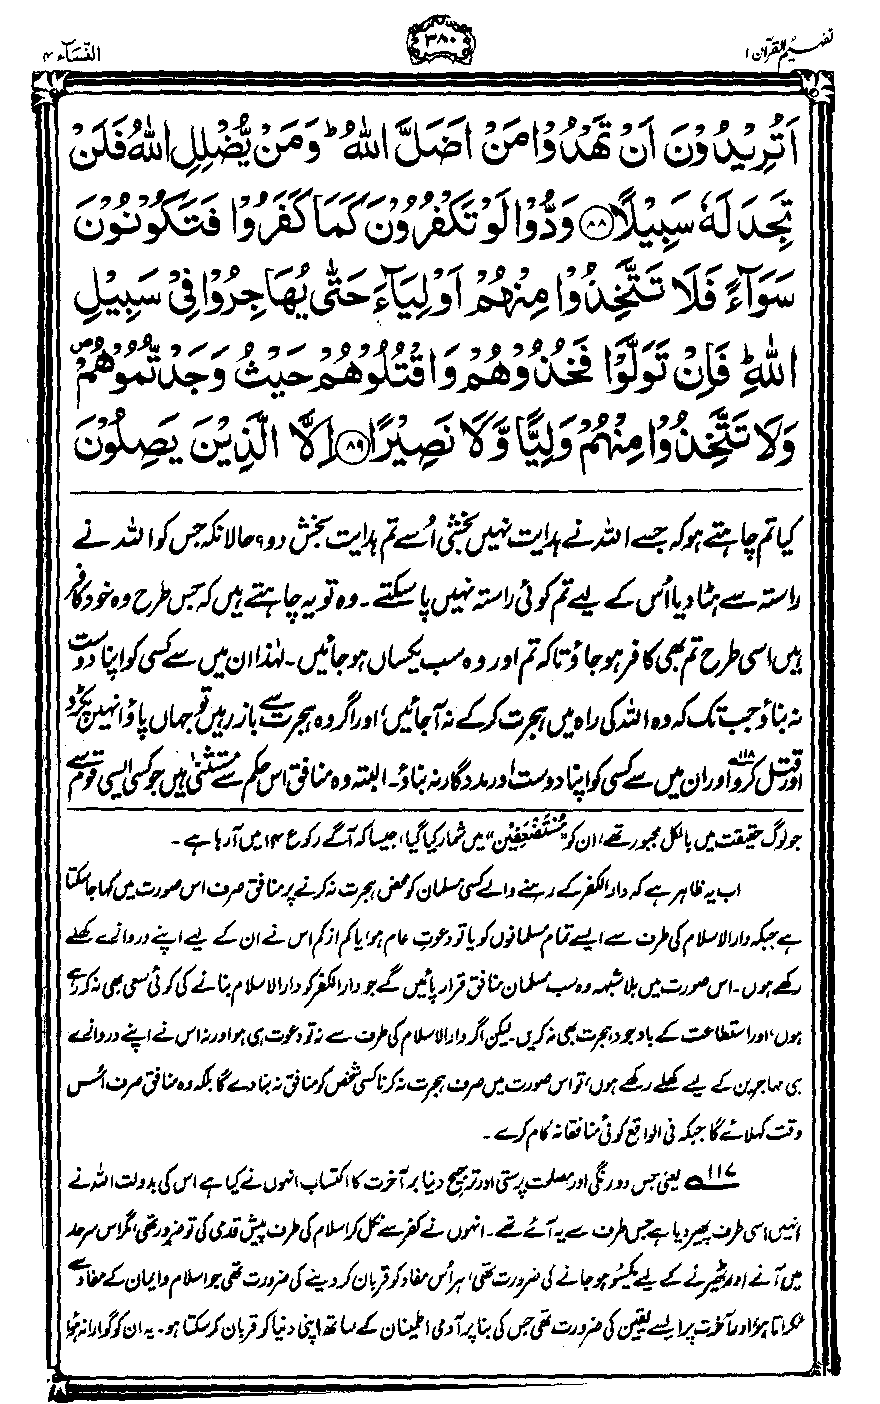 تفہیم القرآن ۱
۳۸۰
النسآء ۴
اَتُرِيْدُوْنَ اَنْ تَهْدُوْا مَنْ اَضَلَّ اللّٰهُ ؕ وَمَنْ يُّضْلِلِ اللّٰهُ فَلَنْ
تَجِدَ لَهٗ سَبِيْلًا ﴿۸۸﴾ وَدُّوْا لَوْ تَكْفُرُوْنَ كَمَا كَفَرُوْا فَتَكُوْنُوْنَ
سَوَآءً فَلَا تَتَّخِذُوْا مِنْهُمْ اَوْلِيَآءَ حَتّٰى يُهَاجِرُوْا فِيْ سَبِيْلِ
اللّٰهِ ؕ فَاِنْ تَوَلَّوْا فَخُذُوْهُمْ وَاقْتُلُوْهُمْ حَيْثُ وَجَدْتُّمُوْهُمْ ۪
وَلَا تَتَّخِذُوْا مِنْهُمْ وَلِيًّا وَّلَا نَصِيْرًا ﴿۸۹﴾ اِلَّا الَّذِيْنَ يَصِلُوْنَ
کیا تم چاہتے ہو کہ جسے اللہ نے ہدایت نہیں بخشی اُسے تم ہدایت بخش دو؟ حالانکہ جس کو اللہ نے
راستہ سے ہٹا دیا اُس کے لیے تم کوئی راستہ نہیں پا سکتے۔ وہ تو یہ چاہتے ہیں کہ جس طرح وہ خود کافر
ہیں اسی طرح تم بھی کافر ہو جاؤ تاکہ تم اور وہ سب یکساں ہو جائیں۔ لہٰذا ان میں سے کسی کو اپنا دوست
نہ بناؤ جب تک کہ وہ اللہ کی راہ میں ہجرت کر کے نہ آجائیں، اور اگر وہ ہجرت سے باز رہیں تو جہاں پاؤ انہیں پکڑو
اور قتل کرو۱۱۸ اور ان میں سے کسی کو اپنا دوست اور مددگار نہ بناؤ۔ البتہ وہ منافق اس حکم سے مستثنیٰ ہیں جو کسی ایسی قوم سے
جو لوگ حقیقت میں بالکل مجبور تھے، ان کو ”مُسْتَضْعَفِیْن“ میں شمار کیا گیا، جیسا کہ آگے رکوع ۱۴ میں آرہا ہے۔
اب یہ ظاہر ہے کہ دارالکفر کے رہنے والے کسی مسلمان کو محض ہجرت نہ کرنے پر منافق صرف اس صورت میں کہا جا سکتا
ہے جبکہ دارالاسلام کی طرف سے ایسے تمام مسلمانوں کو یا تو دعوتِ عام ہو، یا کم از کم اس نے ان کے لیے اپنے دروازے کھلے
رکھے ہوں۔ اس صورت میں بلاشبہہ وہ سب مسلمان منافق قرار پائیں گے جو دارالکفر کو دارالاسلام بنانے کی کوئی سعی بھی نہ کر رہے
ہوں، اور استطاعت کے باوجود ہجرت بھی نہ کریں۔ لیکن اگر دارالاسلام کی طرف سے نہ تو دعوت ہی ہو اور نہ اس نے اپنے دروازے
ہی مہاجرین کے لیے کھلے رکھے ہوں، تو اس صورت میں صرف ہجرت نہ کرنا کسی شخص کو منافق نہ بنا دے گا بلکہ وہ منافق صرف اُس
وقت کہلائے گا جبکہ فی الواقع کوئی منافقانہ کام کرے۔
۱۱۷ یعنی جس دورنگی اور مصلحت پرستی اور ترجیح دنیا بر آخرت کا اکتساب انہوں نے کیا ہے اس کی بدولت اللہ نے
انہیں اسی طرف پھیر دیا ہے جس طرف سے یہ آئے تھے۔ انہوں نے کفر سے نکل کر اسلام کی طرف پیش قدمی کی تو ضرور تھی، مگر اس سرحد
میں آنے اور ٹھیرنے کے لیے یکسُو ہو جانے کی ضرورت تھی، ہر اُس مفاد کو قربان کر دینے کی ضرورت تھی جو اسلام و ایمان کے مفاد سے
ٹکراتا ہو، اور آخرت پر ایسے یقین کی ضرورت تھی جس کی بنا پر آدمی اطمینان کے ساتھ اپنی دنیا کو قربان کر سکتا ہو۔ یہ ان کو گوارا نہ ہُوا